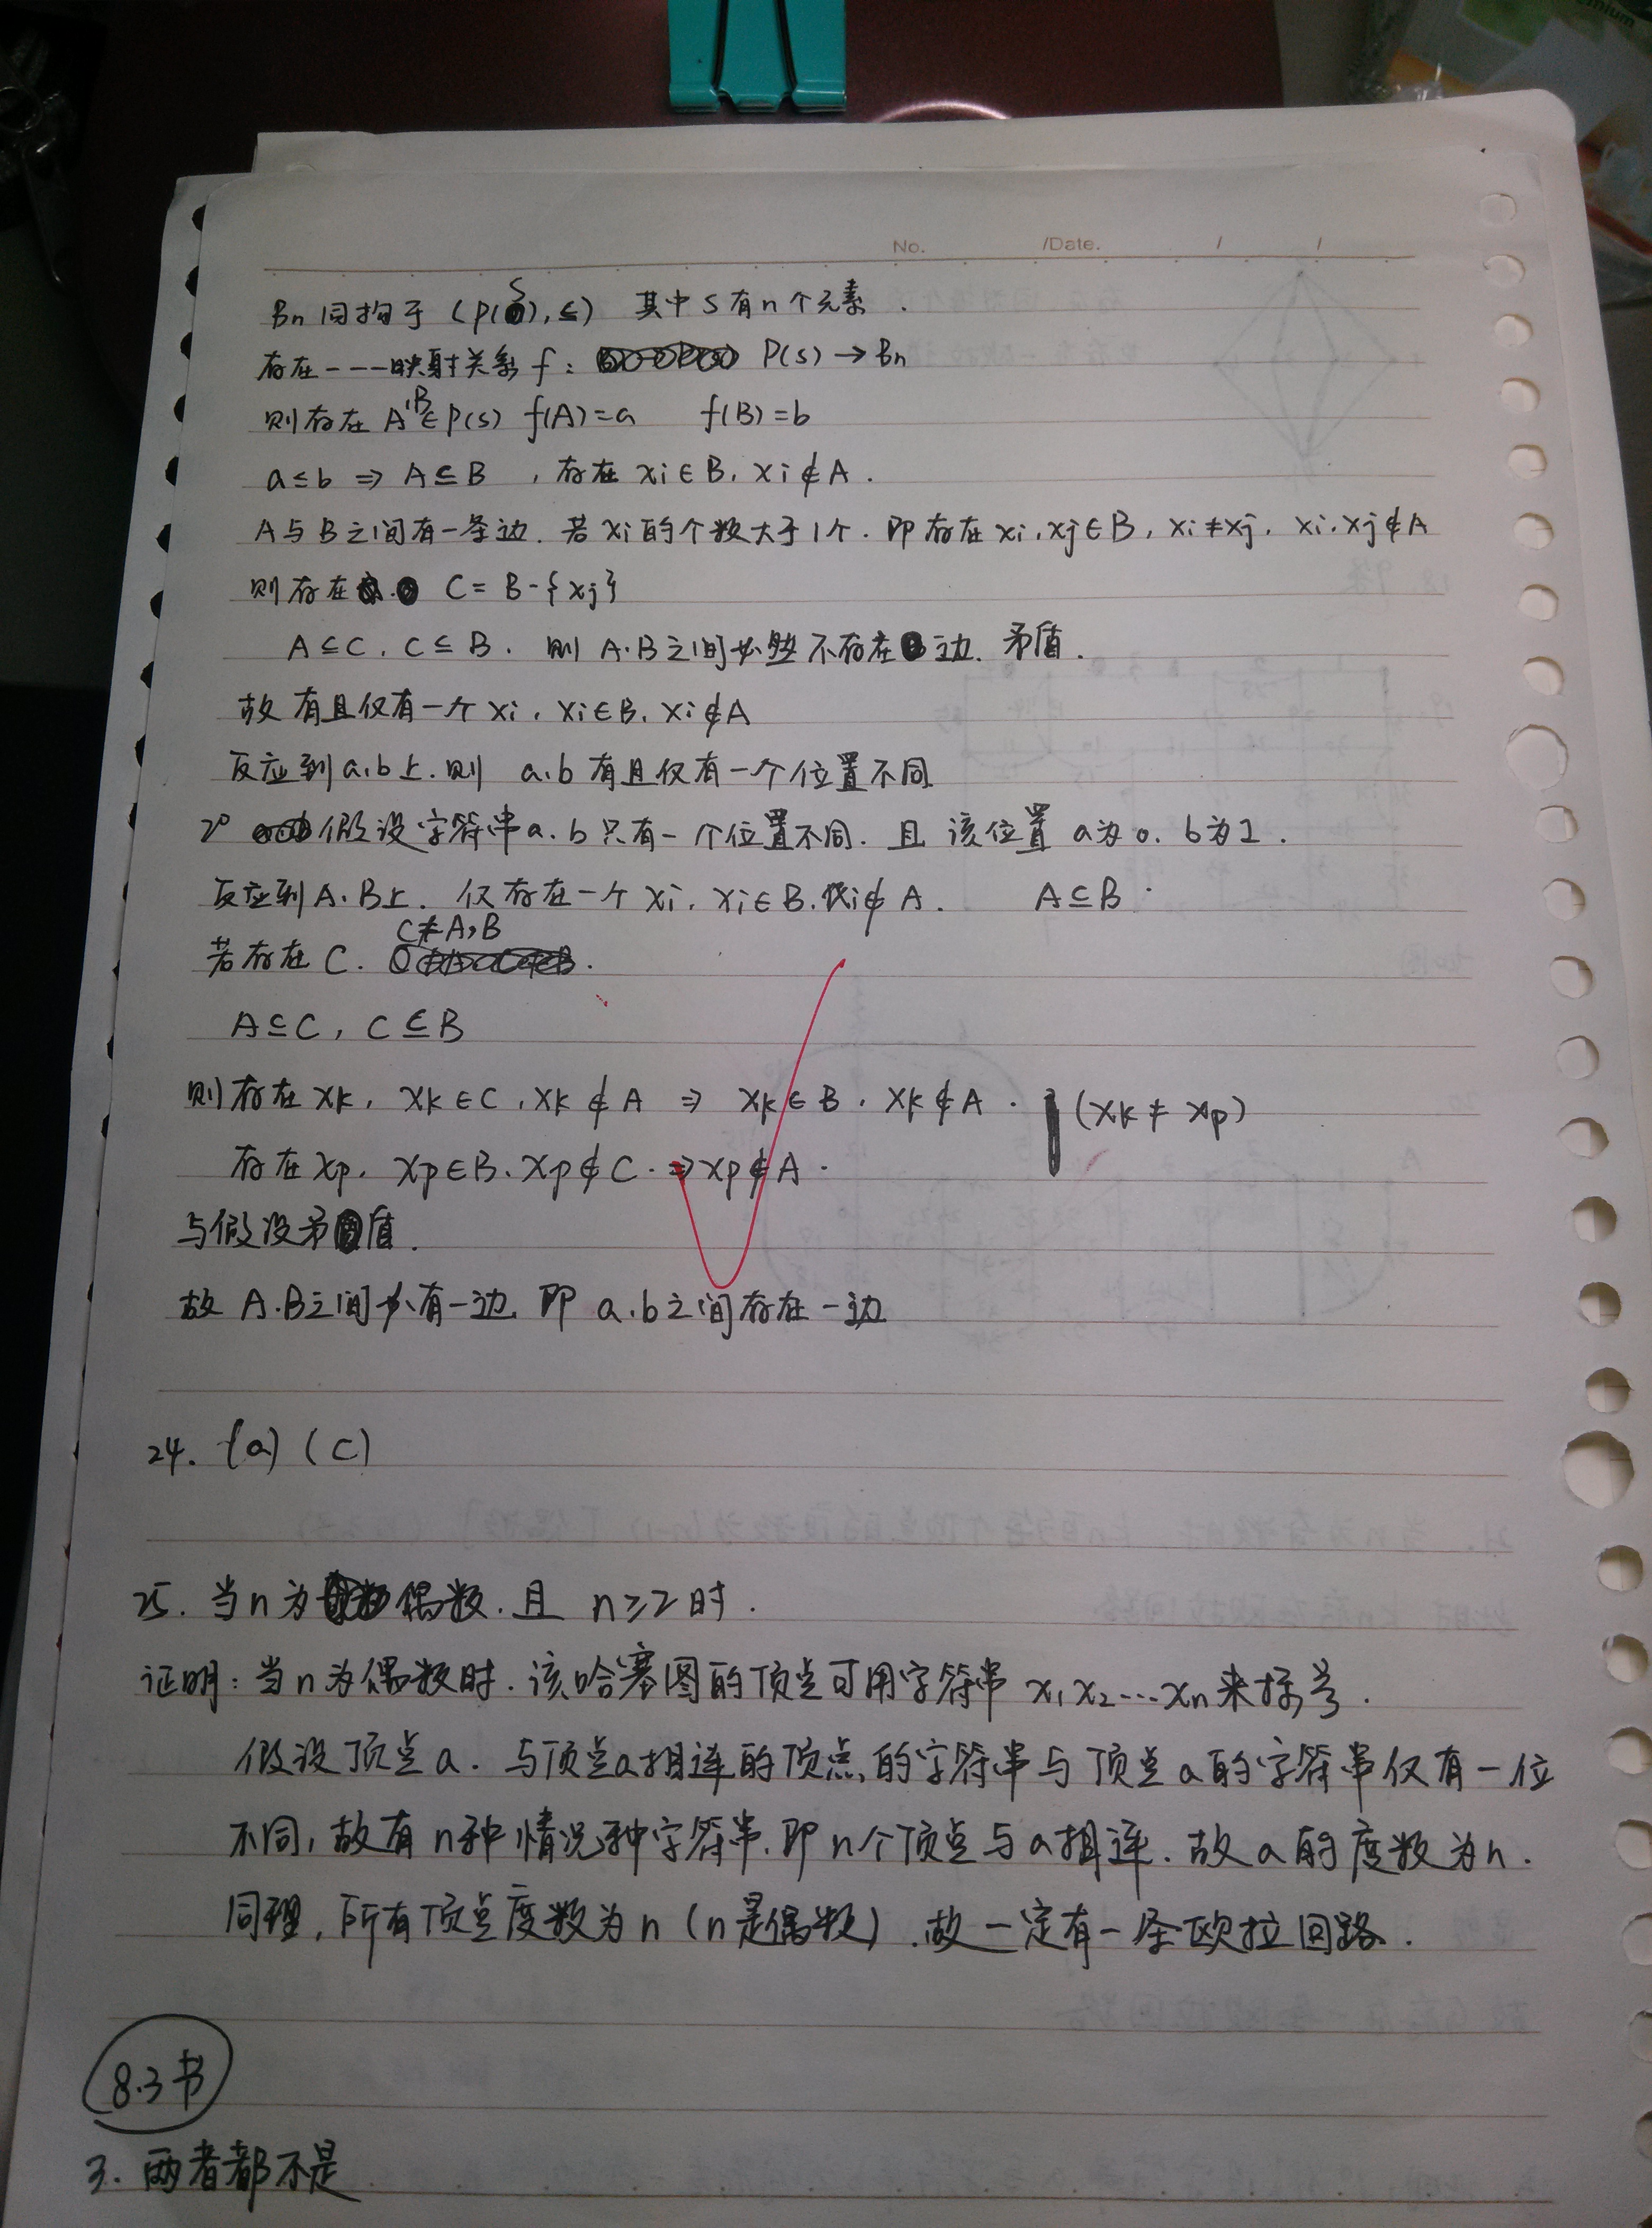 No. /Date. / /
Bn同构于 (P(S),≤) 其中S有n个元素.
存在一一映射关系 f: P(S)→Bn
则存在 A,B∈P(S) f(A)=a f(B)=b
a≤b ⇒ A⊆B , 存在 xi∈B, xi∉A.
A与B之间有一条边. 若xi的个数大于1个. 即存在xi,xj∈B, xi≠xj, xi,xj∉A
则存在 C=B-{xj}
A⊆C, C⊆B. 则 A,B之间必然不存在边. 矛盾.
故有且仅有一个xi, xi∈B, xi∉A
反应到a,b上.则 a,b有且仅有一个位置不同
2° 假设字符串a.b只有一个位置不同. 且该位置 a为0. b为1.
反应到A.B上. 仅存在一个xi, xi∈B,xi∉A. A⊆B.
若存在C. C≠A,B
A⊆C, C⊆B
则存在xk, xk∈C,xk∉A ⇒ xk∈B. xk∉A. (xk≠xp)
存在xp, xp∈B.xp∉C. ⇒xp∉A.
与假设矛盾.
故 A.B之间必有一边. 即 a,b之间存在一边
24. (a) (c)
25. 当n为偶数.且 n≥2时.
证明:当n为偶数时.该哈塞图的顶点可用字符串 x1x2...xn来标号.
假设顶点a. 与顶点a相连的顶点的字符串与顶点a的字符串仅有一位
不同,故有n种情况种字符串.即n个顶点与a相连.故a的度数为n.
同理,所有顶点度数为n(n是偶数).故一定有一条欧拉回路.
8.3节
3. 两者都不是